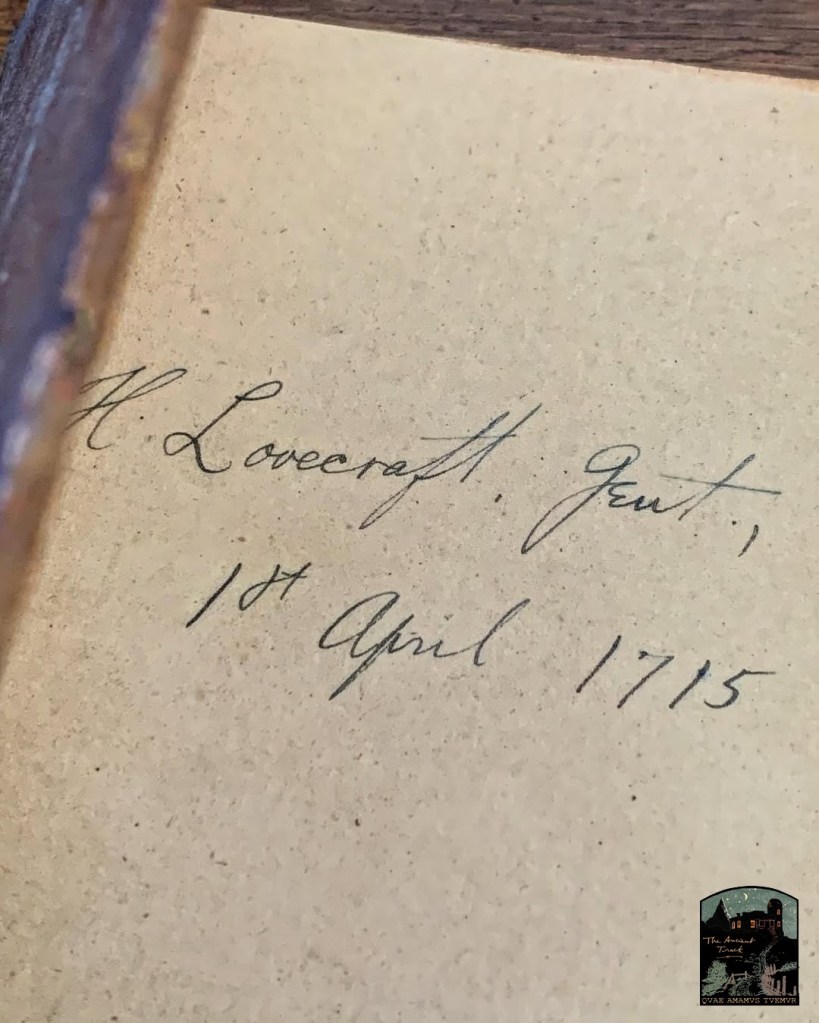 H. Lovecraft. Gent.,
1st April 1715
The Ancient
Track
QVAE AMAMVS TVEMVR